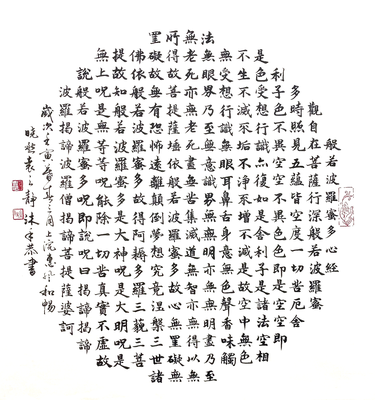 般若波羅蜜多心經
觀自在菩薩行深般若波羅蜜
多時照見五蘊皆空度一切苦厄舍
利子色不異空空不異色色即是空空即
是色受想行識亦復如是舍利子是諸法空相
不生不滅不垢不淨不增不減是故空中無色
無受想行識無眼耳鼻舌身意無色聲香味觸
法無眼界乃至無意識界無無明亦無無明盡乃至
無老死亦無老死盡無苦集滅道無智亦無得以無
所得故菩提薩埵依般若波羅蜜多故心無罣礙無
罣礙故無有恐怖遠離顛倒夢想究竟涅槃三世諸
佛依般若波羅蜜多故得阿耨多羅三藐三菩
提故知般若波羅蜜多是大神咒是大明咒是
無上咒是無等等咒能除一切苦真實不虛故
說般若波羅蜜多咒即說咒曰揭諦揭諦
波羅揭諦波羅僧揭諦菩提薩婆訶
歲次壬寅春上院惠風和暢
袁之靜沐手恭書